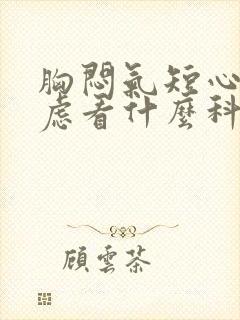 胸悶氣短心
慮看什麼科
顧雲茶